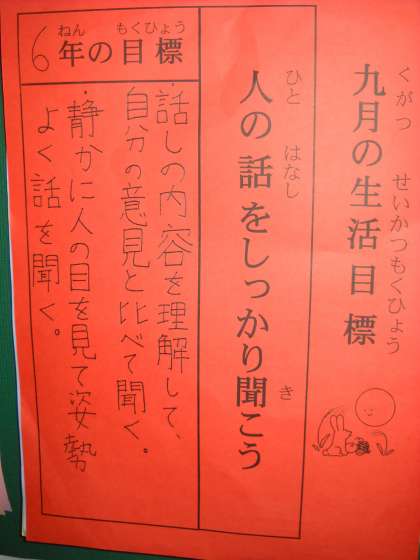 九月の生活目標
くがつ せいかつもくひょう
人の話をしっかり聞こう
ひと はなし き
6年の目標
ねん もくひょう
・話しの内容を理解して、
自分の意見と比べて聞く。
・静かに人の目を見て姿勢
よく話を聞く。